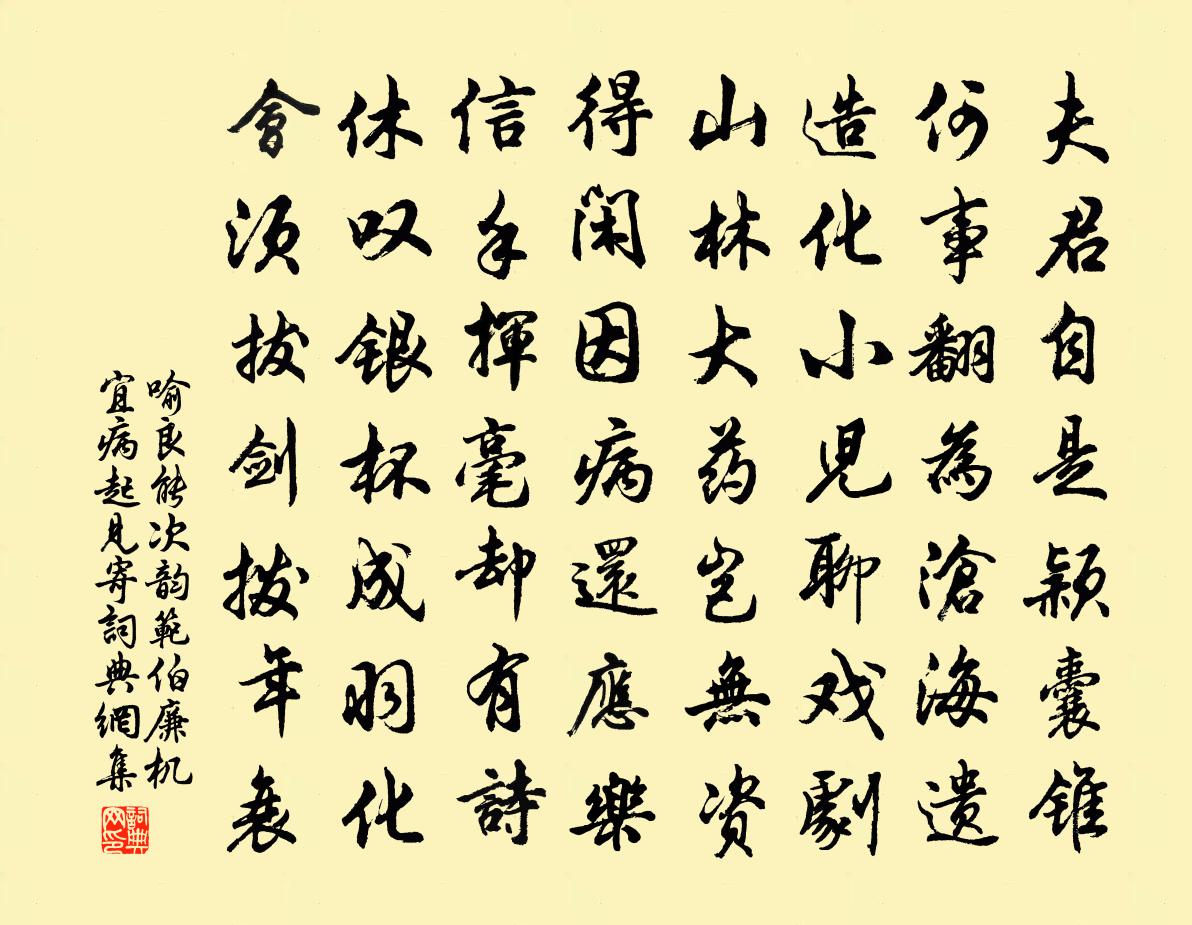 夫君自是颖囊锥
何事翻為滄海遗
造化小児聊戏劇
山林大药岂無资
得闲因病還應樂
信手揮毫却有詩
休叹银杯成羽化
會须拔剑拨年衰
喻良能次韵範伯廉机
宜病起見寄詞典網集
詞典网印